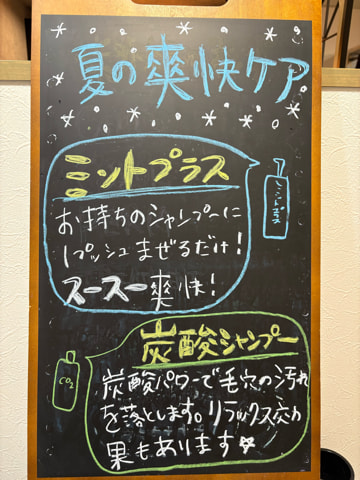 夏の爽快ケア
ミントプラス
お持ちのシャンプーに
1プッシュまぜるだけ!
スースー爽快!
ミントプラス
炭酸シャンプー
CO2
炭酸パワーで毛穴の汚れ
を落とします。リラックス効
果もあります